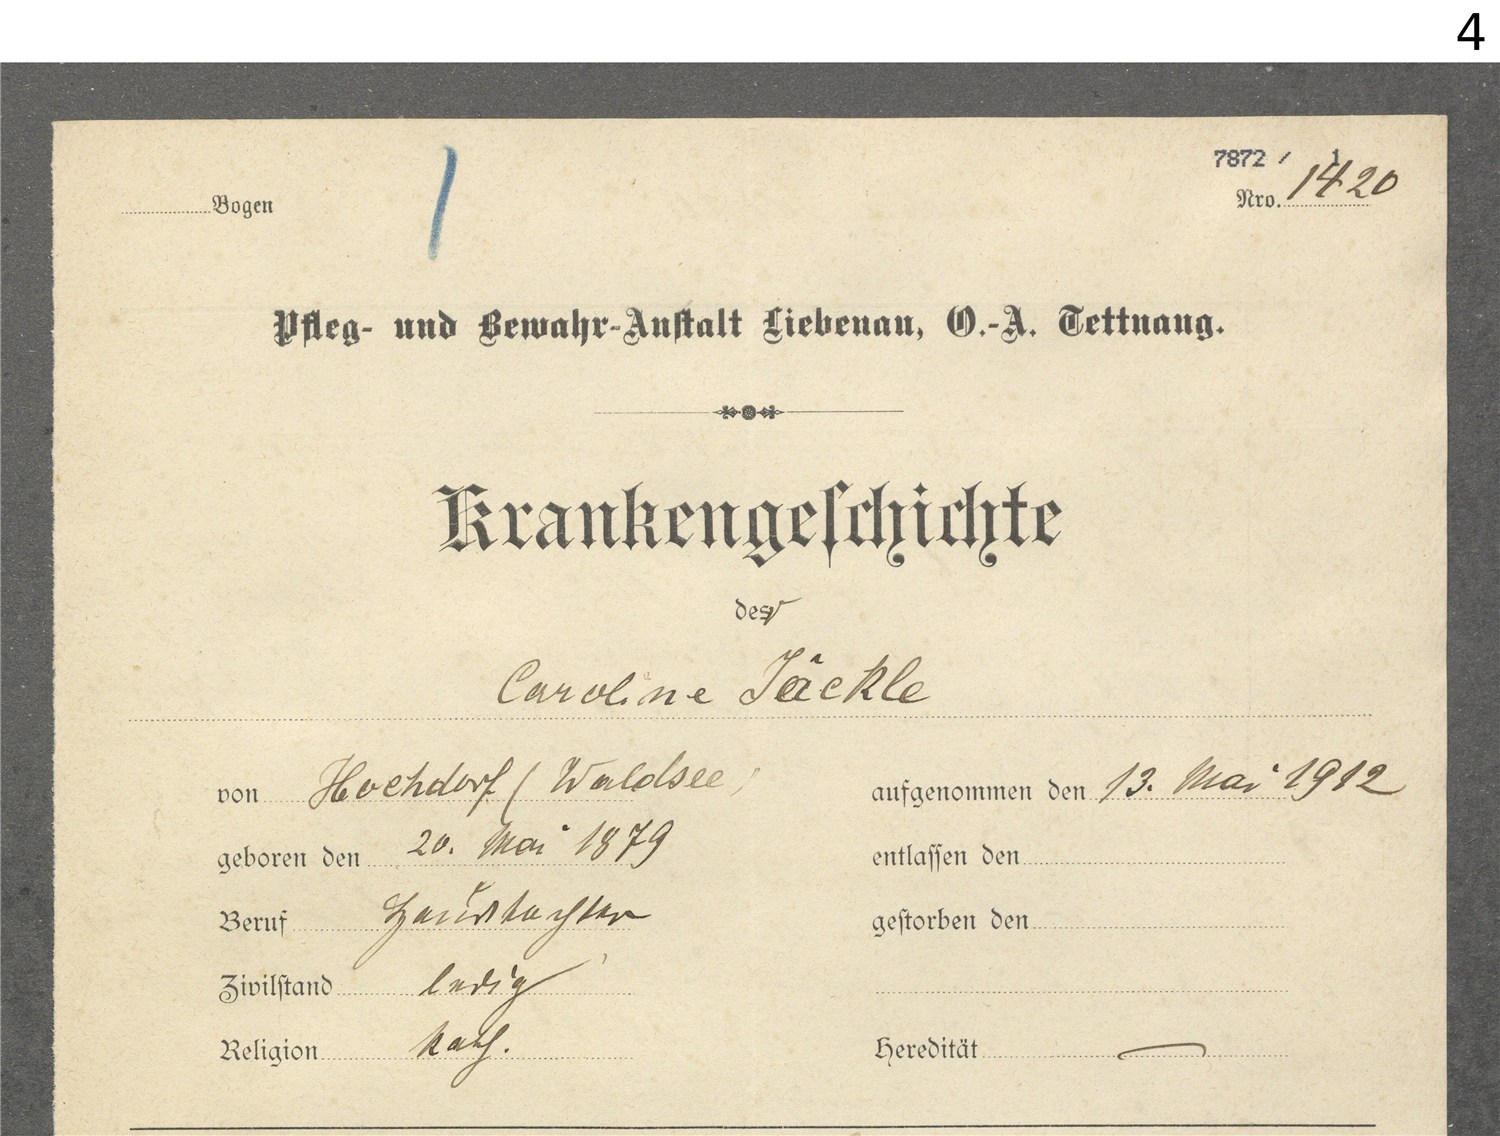 4
7872 / 1
Bogen
Nro. 1420
Pfleg- und Bewahr-Anstalt Liebenau, O.-A. Tettnang.
Krankengeschichte
der
Caroline Jäckle
von Hochdorf (Waldsee)
aufgenommen den 13. Mai 1912
geboren den 20. Mai 1879
entlassen den
Beruf Haustochter
gestorben den
Zivilstand ledig
Religion kath.
Heredität —